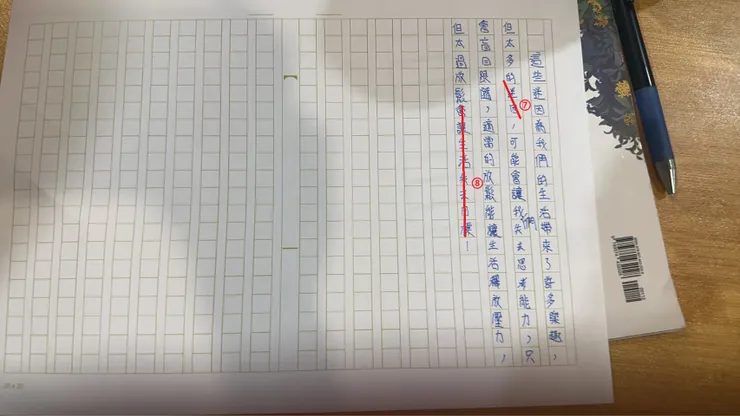 這些迷因為我們的生活帶來了許多樂趣，
但太多的迷因，可能會讓我們失去思考能力，只
會盲目跟隨，適當的放鬆能讓生活釋放壓力，
但太過放鬆會讓生活失去目標！
⑦
⑧